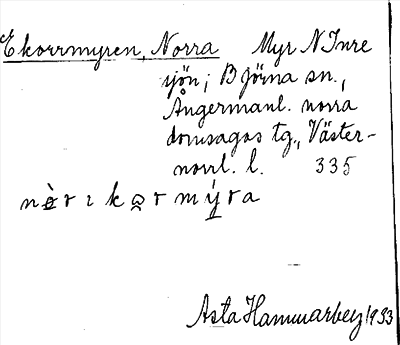 Ekorrmyren, Norra Myr N Inre
sjön; Björna sn.,
Ångermanl. norra
domsagas tg., Väster-
norrl. l. 335
Asta Hammarberg 1933